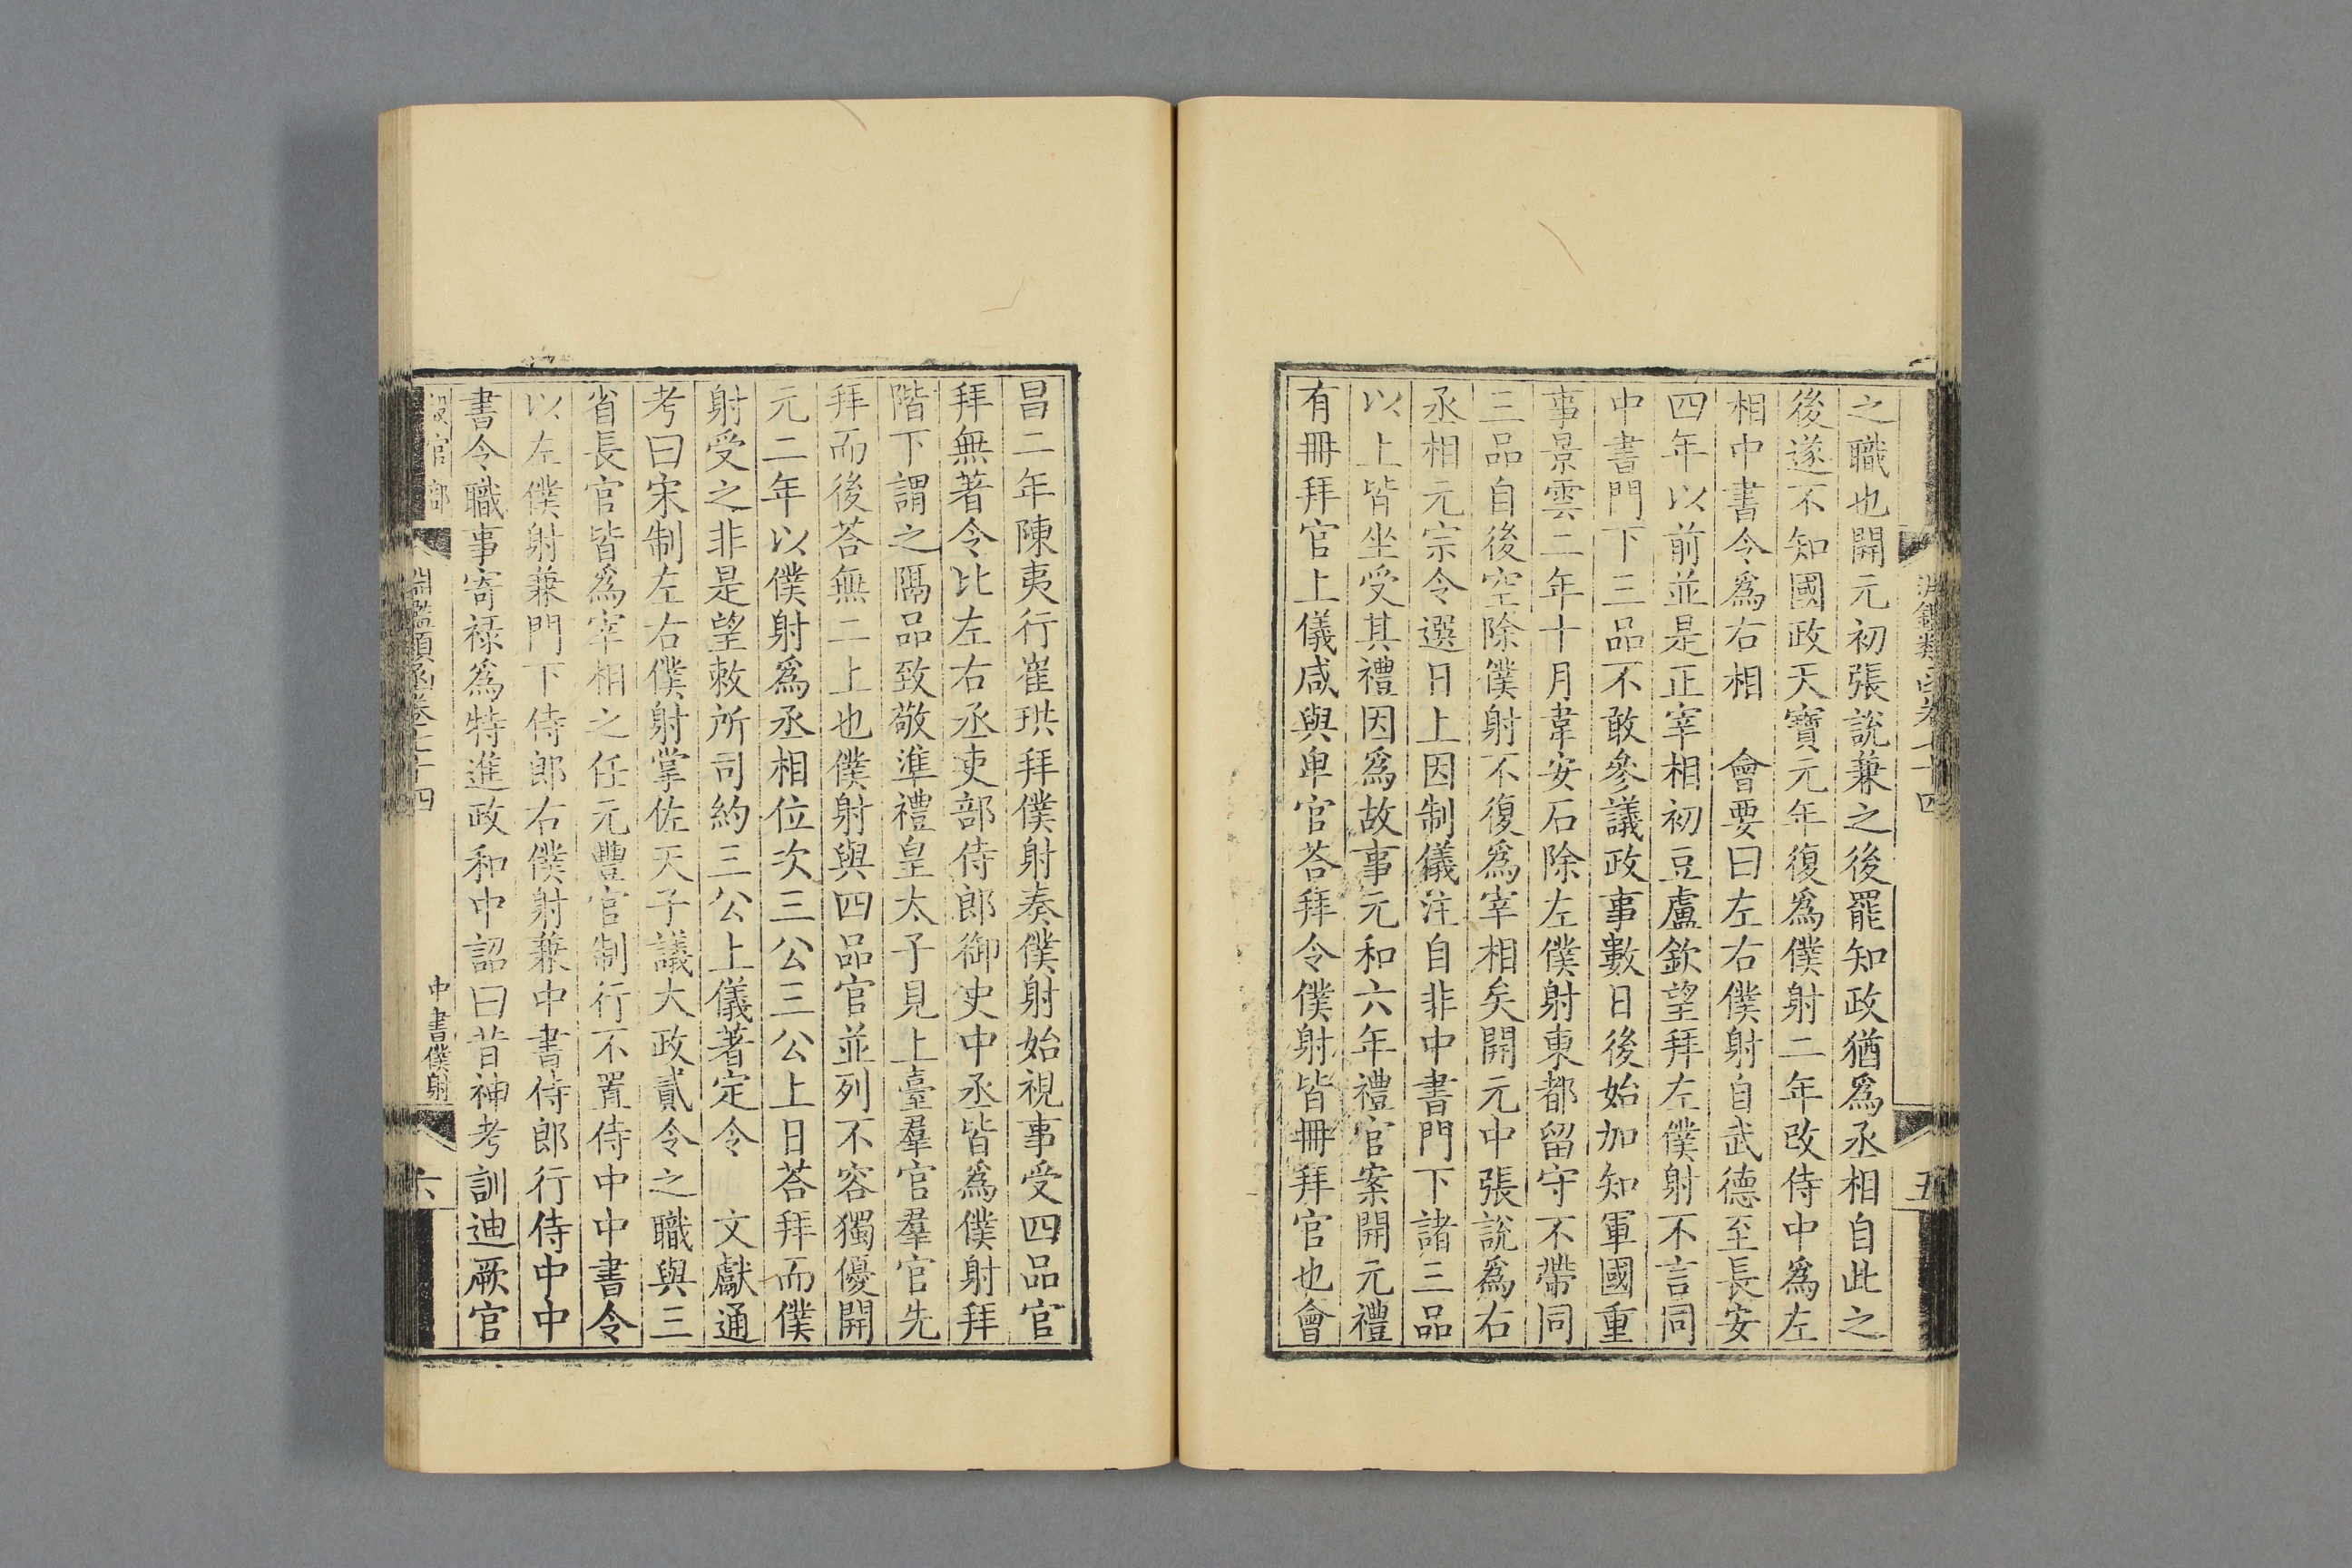 之職也開元初張說兼之後罷知政猶爲丞相自此之
後遂不知國政天寶元年復爲僕射二年改侍中爲左
相中書令爲右相　會要曰左右僕射自武德至長安
四年以前並是正宰相初豆盧欽望拜左僕射不言同
中書門下三品不敢參議政事數日後始加知軍國重
事景雲二年十月韋安石除左僕射東都留守不帶同
三品自後空除僕射不復爲宰相矣開元中張說爲右
丞相元宗令選日上因制儀注自非中書門下諸三品
以上皆坐受其禮因爲故事元和六年禮官案開元禮
有冊拜官上儀咸與卑官荅拜令僕射皆冊拜官也會
五
昌二年陳夷行崔珙拜僕射奏僕射始視事受四品官
拜無著令比左右丞吏部侍郎御史中丞皆爲僕射拜
階下謂之隔品致敬準禮皇太子見上臺羣官羣官先
拜而後荅無二上也僕射與四品官並列不容獨優開
元二年以僕射爲丞相位次三公三公上日荅拜而僕
射受之非是望敕所司約三公上儀著定令　文獻通
考曰宋制左右僕射掌佐天子議大政貳令之職與三
省長官皆爲宰相之任元豐官制行不置侍中中書令
以左僕射兼門下侍郎右僕射兼中書侍郎行侍中中
書令職事寄祿爲特進政和中詔曰昔神考訓迪厥官
設官部
淵鑑類函卷七十四
中書僕射
六